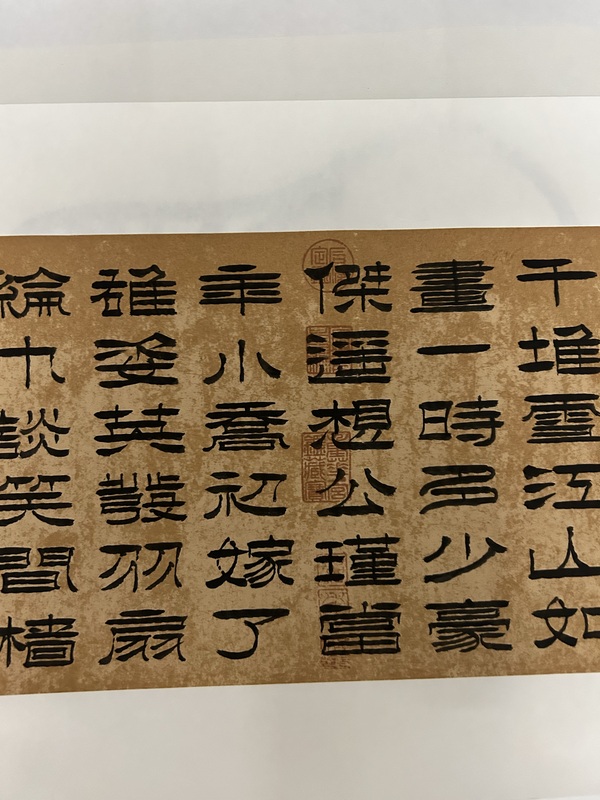 千堆雪江山如
畫一時多少豪
傑遙想公瑾當
年小喬初嫁了
雄姿英發羽扇
綸巾談笑間檣